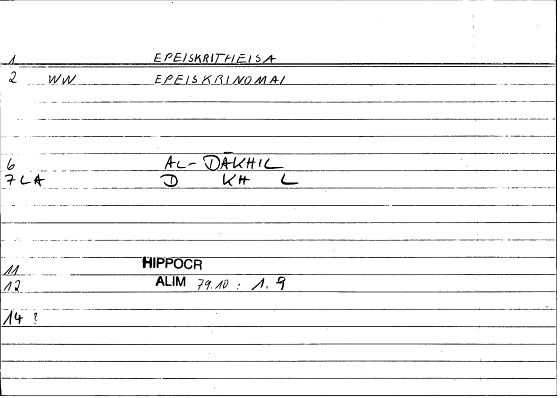 1 EPEISKRITHEISA
2 WW EPEISKRINOMAI
6 AL-DĀKHIL
7 LA D KH L
11 HIPPOCR
12 ALIM 79.10 : 1.9
14 ?